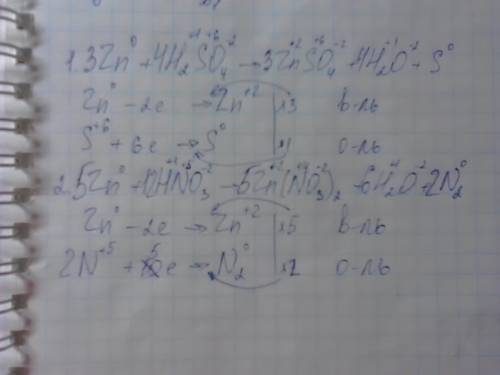 1. 3Zn⁰ + 4H₂⁺¹S⁺⁶O₄⁻² → 3Zn⁺²S⁺⁶O₄⁻² + 4H₂⁺¹O⁻² + S⁰
Zn⁰ - 2e → Zn⁺² | ×3 в-ль
S⁺⁶ + 6e → S⁰ | ×1 о-ль
2. 5Zn⁰ + 10H⁺¹N⁺⁵O₃⁻² → 5Zn⁺²(N⁺⁵O₃⁻²)₂ 6H₂⁺¹O⁻² 2N₂⁰
Zn⁰ - 2e → Zn⁺² | ×5 в-ль
2N⁺⁵ + 5e → N₂⁰ | ×2 о-ль